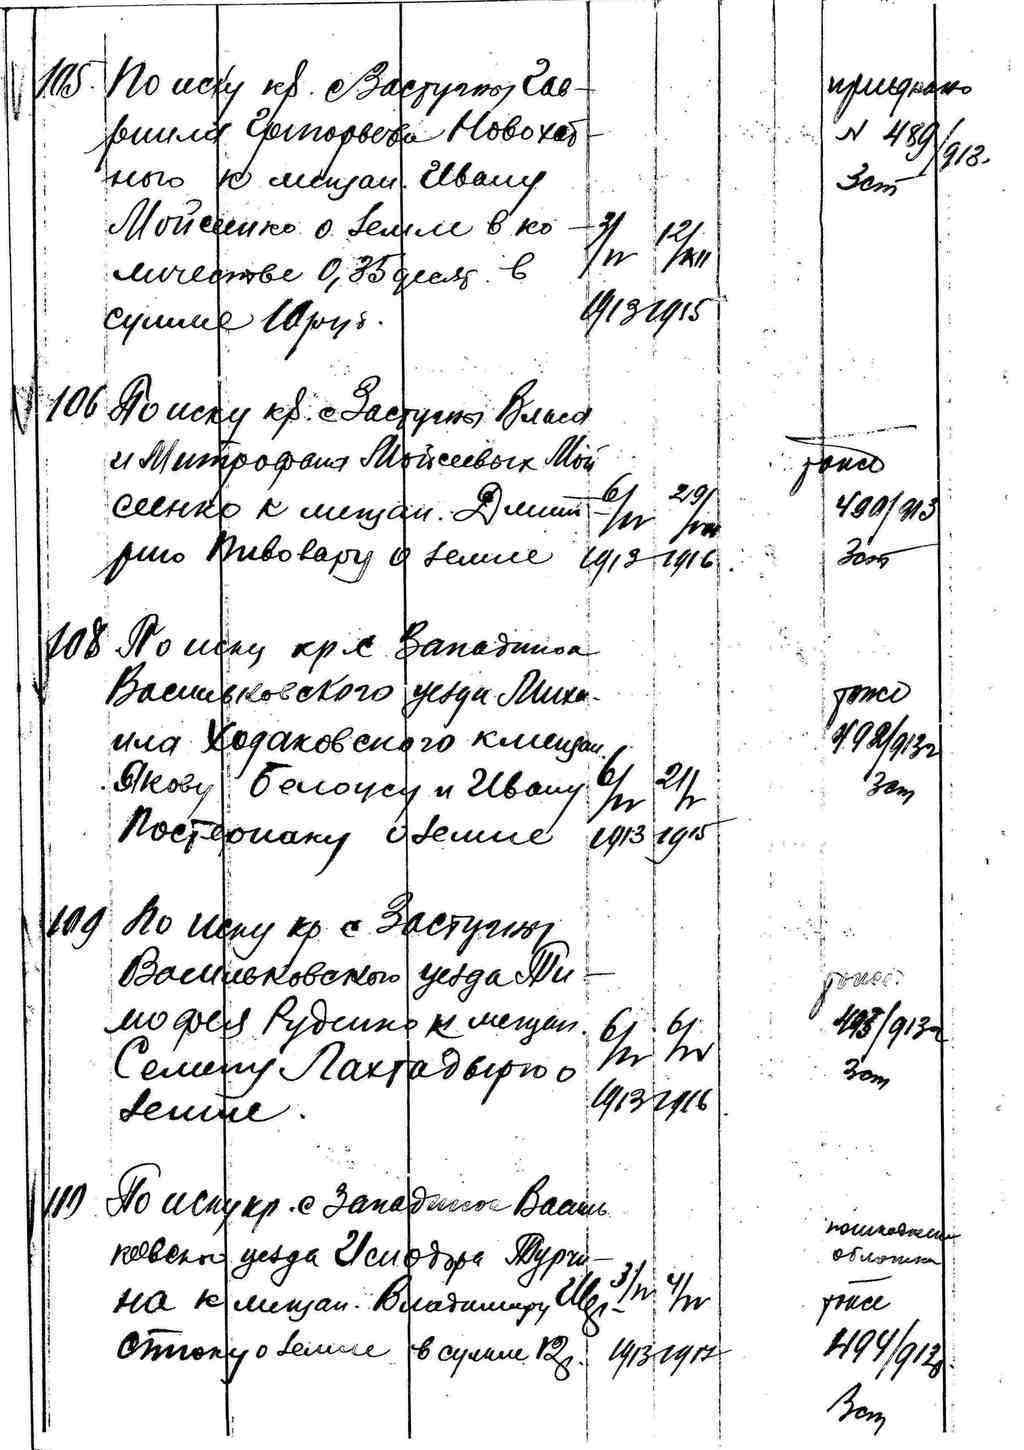 105. По иску кр. с Застугны Гав-
риила Григорьева Новохат-
ного к мещан. Ивану
Мойсеенко о земле в ко-
личестве 0,35 десят. в
сумме 10 руб.
3/IV 1913
12/XII 1915
№ 489/913.
3 ст
106 По иску кр. с Застугны Власа
и Митрофана Мойсеевых Мой
сеенко к мещан. Дмит-
рию Пивовару о земле
6/IV 1913
1916
тоже
490/913
3 ст
108 По иску кр с Западинок
Васильковского уезда Миха-
ила Ходаковского к мещан.
Якову Белоусу и Ивану
Постернаку о земле
6/IV 1913
21/V 1915
тоже
492/913г
3 ст
109 По иску кр с Застугны
Васильковского уезда Ти-
мофея Руденко к мещан.
Семену Лахтадырю о
земле.
6/IV 1913
6/IV 1916
тоже
493/913г
3 ст
110 По иску кр. с Западинок Василь
ковского уезда Исидора Турчи-
на к мещан. Владимиру
о земле в сумме
3/IV 1913
4/IV 1917
обложка
тоже
494/913г.
3 ст